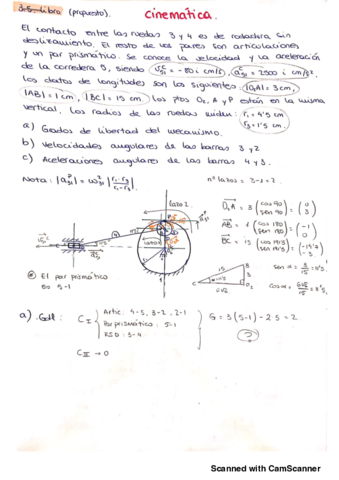 3.5 - Libro (propuesto).
Cinemática.
El contacto entre las ruedas 3 y 4 es de rodadura sin
deslizamiento. El resto de los pares son articulaciones
y un par prismático. Se conoce la velocidad y la aceleración
de la corredera 5, siendo
los datos de longitudes son los siguientes: |O₂A| = 3cm,
|AB| = 1 cm, |BC| = 15 cm los ptos O₂, A y P están en la misma
vertical. Los radios de las ruedas miden: r₄ = 4'5 cm
r₃ = 1'5 cm.
a) Grados de libertad del mecanismo.
b) Velocidades angulares de las barras 3 y 2
c) Aceleraciones angulares de las barras 4 y 3.
Nota:
nº lazos = 3-1 = 2.
lazo 2.
O₂A = 3 (cos 90 sen 90) = (0 3)
AB = 1 (cos 180 sen 180) = (-1 0)
BC = 15
El par prismático
es 5-1
sen α = 3/15
cos α =
a) Gdl:
C_I { Artic: 4-5, 3-2, 2-1
Par prismático: 5-1
RSD: 3-4
G = 3(5-1) - 2·5 = 2
?
C_II → 0
Scanned with CamScanner